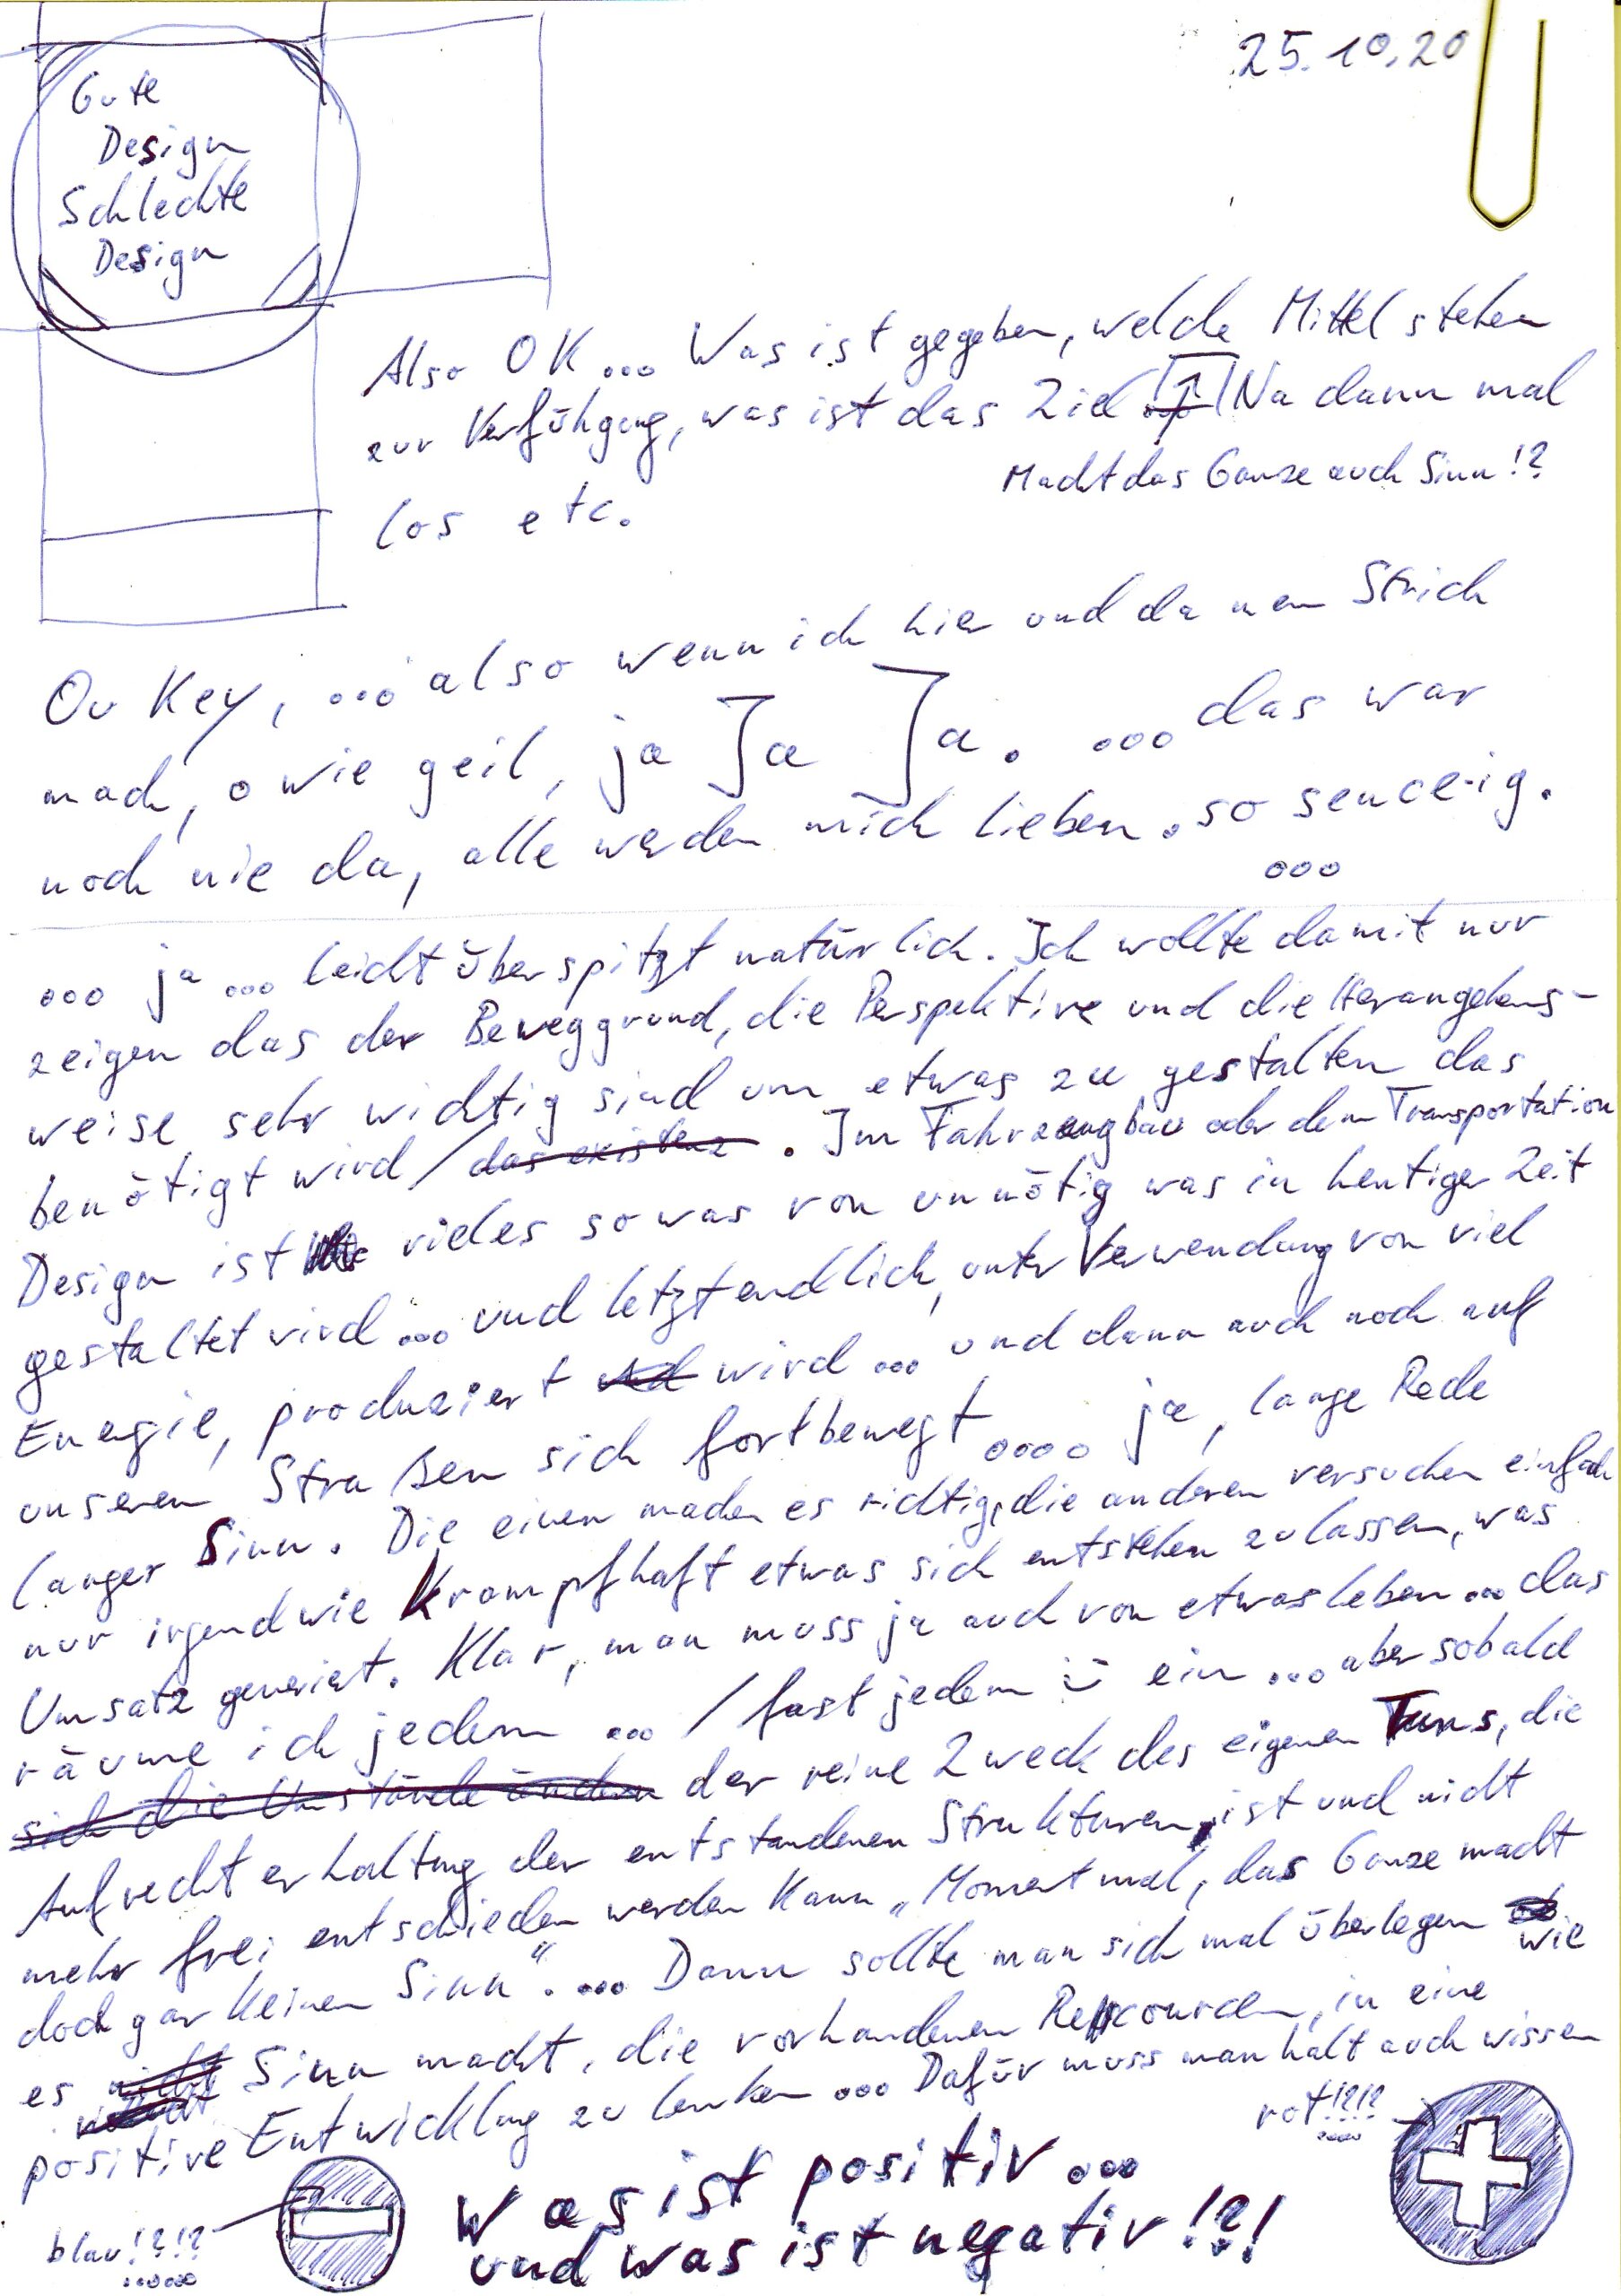 25.10.20
Gute
Design
Schlechte
Design
Also OK ... Was ist gegeben, welche Mittel stehen
zur Verfühgung, was ist das Ziel ... Na dann mal
Macht das Ganze auch Sinn!?
los etc.
Ou Key, ... also wenn ich hier und da nen Strich
mach, o wie geil, ja Ja Ja. ... das war
noch nie da, alle werden mich lieben. so senceig.
...
... ja ... leicht überspitzt natürlich. Ich wollte damit nur
zeigen das der Beweggrund, die Perspektive und die Herangehens-
weise sehr wichtig sind um etwas zu gestalten das
benötigt wird / das existenz . Im Fahrzeugbau oder dem Transportation
Design ist vieles sowas von unnötig was in heutiger Zeit
gestaltet wird ... und letztendlich, unter Verwendung von viel
Energie, produziert wird ... und dann auch noch auf
unseren Straßen sich fortbewegt .... ja, lange Rede
langer Sinn. Die einen machen es richtig, die anderen versuchen einfach
nur irgendwie Krampfhaft etwas sich entstehen zu lassen, was
Umsatz generiert. Klar, man muss ja auch von etwas leben ... das
räume ich jedem ... / fast jedem ein ... aber sobald
sich die Umstände ändern der reine Zweck des eigenen Tuns, die
Aufrechterhaltung der entstandenen Strukturen, ist und nicht
mehr frei entschieden werden kann „Moment mal, das Ganze macht
doch gar keinen Sinn“. ... Dann sollte man sich mal überlegen wie
es Sinn macht, die vorhandenen Resourcen, in eine
positive Entwicklung zu lenken ... Dafür muss man halt auch wissen
rot!?!?
Was ist positiv ...
und was ist negativ!?!
blau!?!?